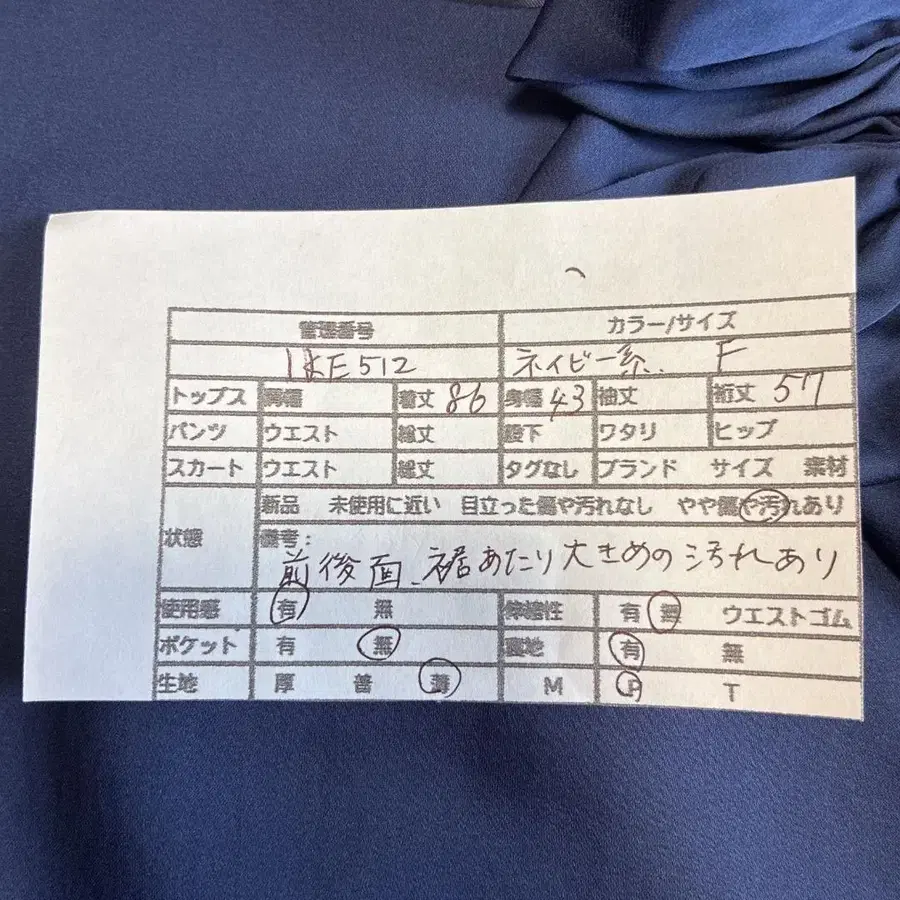 管理番号 カラー/サイズ
はE512 ネイビー系. F
トップス 肩幅 着丈 86 身幅 43 袖丈 裄丈 57
パンツ ウエスト 総丈 股下 ワタリ ヒップ
スカート ウエスト 総丈 タグなし ブランド サイズ 素材
新品 未使用に近い 目立った傷や汚れなし やや傷や汚れあり
状態 備考:
前後面、裾あたり大きめの汚れあり
使用感 有 無 伸縮性 有 無 ウエストゴム
ポケット 有 無 裏地 有 無
生地 厚 普 薄 M P T